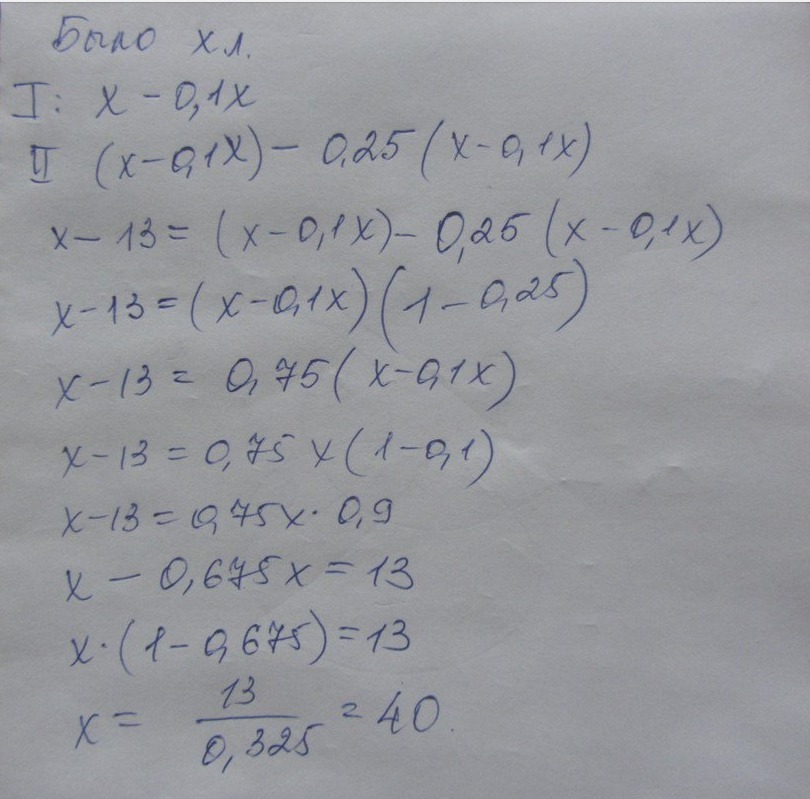 Было х л.
I: x - 0,1x
II (x-0,1x) - 0,25(x-0,1x)
x-13=(x-0,1x)-0,25(x-0,1x)
x-13=(x-0,1x)(1-0,25)
x-13=0,75(x-0,1x)
x-13=0,75x(1-0,1)
x-13=0,75x·0,9
x-0,675x=13
x·(1-0,675)=13
x= 13/0,325 = 40.